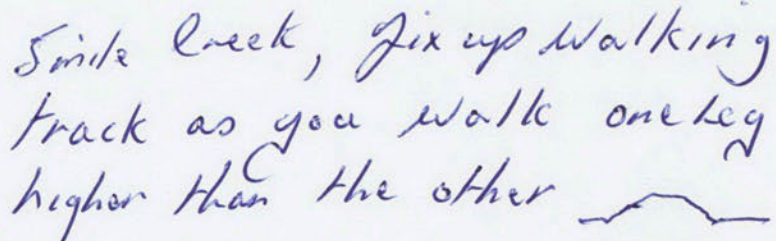 5mile Creek, fix up walking
track as you walk one leg
higher than the other